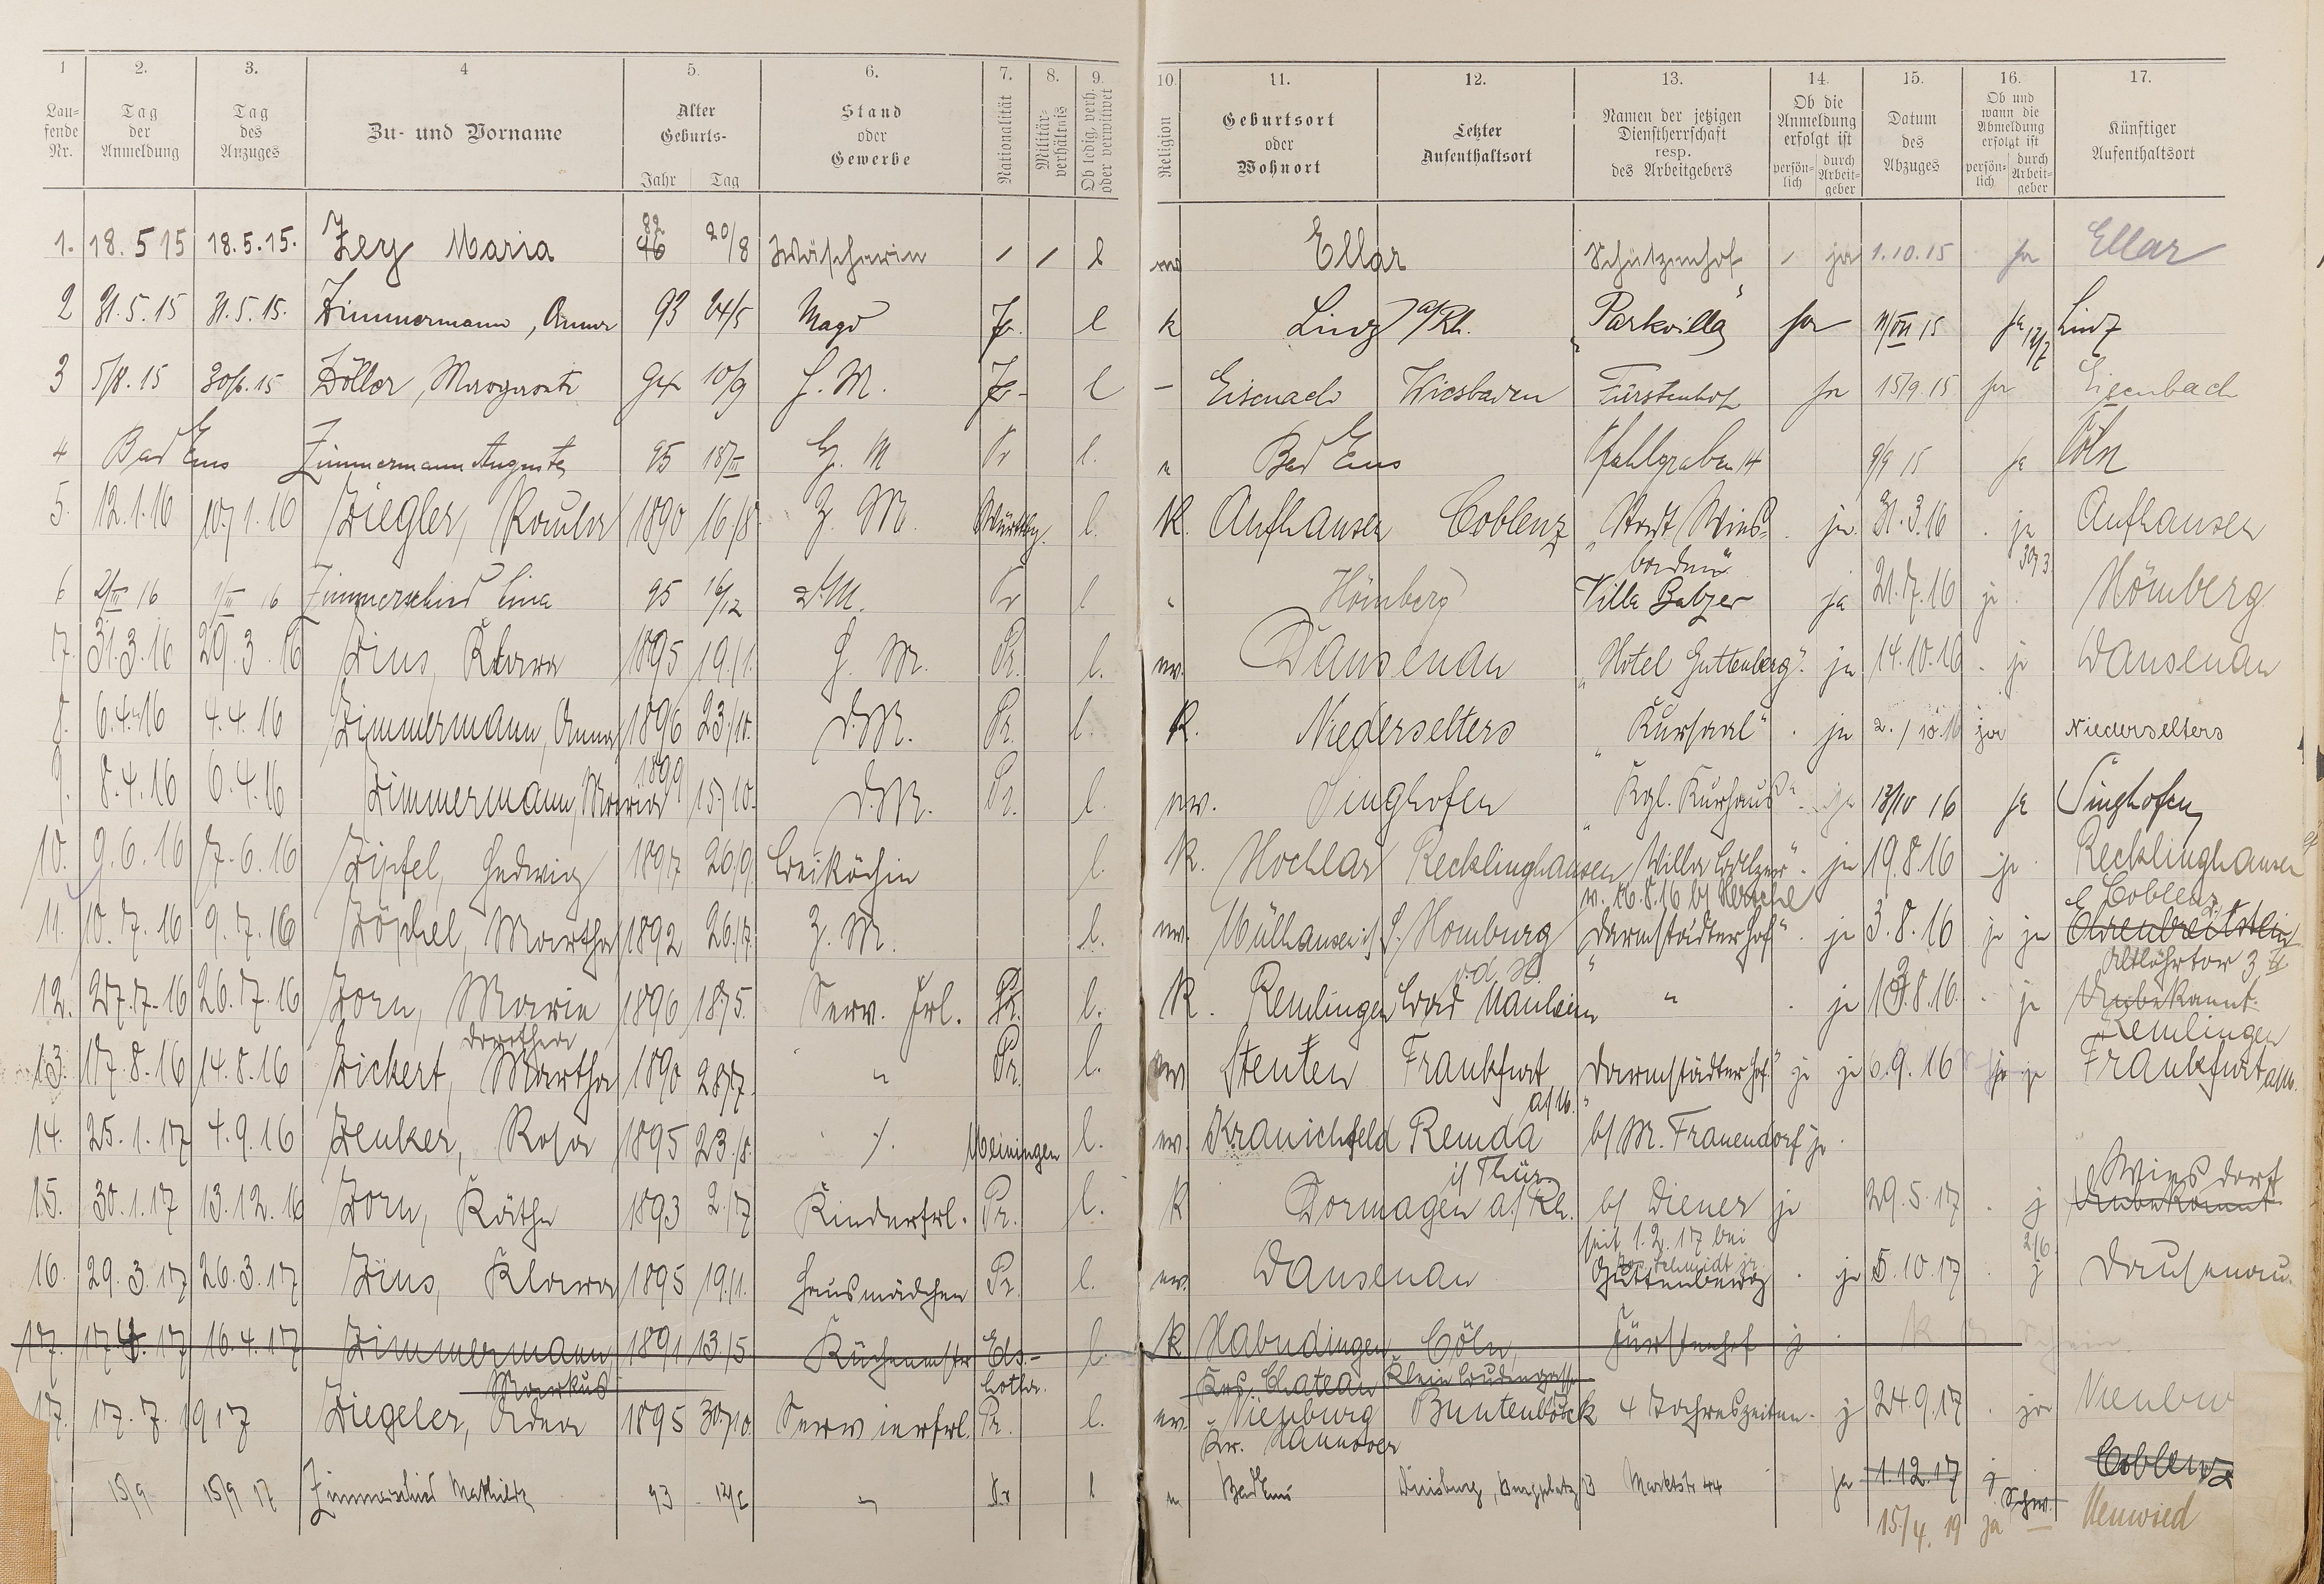 1 2. 3. 4 5. 6. 7. 8. 9. 10 11. 12. 13. 14. 15. 16. 17.
Lau-
fende
Nr.
Tag
der
Anmeldung
Tag
des
Anzuges
Zu- und Vorname
Alter
Geburts-
Jahr Tag
Stand
oder
Gewerbe
Nationalität
Militär-
verhältnis
Ob ledig, verh.
oder verwitwet
Religion
Geburtsort
oder
Wohnort
Letzter
Aufenthaltsort
Namen der jetzigen
Dienstherrschaft
resp.
des Arbeitgebers
Ob die
Anmeldung
erfolgt ist
persön-
lich
durch
Arbeit-
geber
Datum
des
Abzuges
Ob und
wann die
Abmeldung
erfolgt ist
persön-
lich
durch
Arbeit-
geber
Künftiger
Aufenthaltsort
82
1. 18. 5 15 18. 5. 15. Zey Maria 20/8 Wäscherin / / l Ellar Schützenhof / ja 1.10.15 ja Ellar
2 31. 5. 15 31. 5. 15. Zimmermann, Anna 93 24/5 Magd Pr. l k Linz a/Rh. "Parkvilla" ja 11/VII 15 ja 12/7 Linz
3 5/8. 15 15 Zöller, Margarete 94 10/9 H. M. Pr. l - Eisenach Wiesbaden Fürstenhof ja 15/9. 15 ja Eisenbach
4 Bad Ems Zimmermann Auguste 95 18/III H. M Pr l. Bad Ems Pfahlgraben 14 9/9 15 ja Cöln
5. 12. 1. 16 10. 1. 16 Ziegler, Paula 1890 16./8. Z. M. Württbg. l. K. Aufhausen Coblenz "Stadt Wies-
baden" . ja. 31. 3. 16 . ja 30/3 Aufhausen
6 2/III 16 1/III 16 Zimmerschied Lina 95 16/12 Z.M. Pr l Hömberg Villa Balzer ja 21. 7. 16 ja . Hömberg
7. 31. 3. 16 29. 3. 16 Zius, Klara 1895 19./1. H. M. Pr. l. ev. Dausenau "Hotel Guttenberg". ja 14. 10. 16 . ja Dausenau
8. 6. 4. 16 4. 4. 16 Zimmermann, Anna 1896 23./10. D.M. Pr. l. K. Niederselters "Kursaal" . ja 2./10. 16 ja Niederselters
9. 8. 4. 16 6. 4. 16 Zimmermann, Maria 1899 15./10. D.M. Pr. l. ev. Singhofen "Kgl. Kurhaus" . ja 13/10 16 ja Singhofen
10. 9. 6. 16 7. 6. 16 Zipfel, Hedwig 1897 20./9. Beiköchin l. K. Hochlar Recklinghausen "Villa Balzer". ja 19. 8. 16 ja . Recklinghausen
v. 16. 8. 16 b/
Coblenz,
11. 10. 7. 16 9. 7. 16 Zöphel, Martha 1892 26./7. Z. M. l. ev. Mülhausen i/ Homburg
v. d. H. "Darmstädter Hof" . ja 3. 8. 16 ja ja Ehrenbreitstein
Altlöhrtor 3 II
12. 27. 7. 16 26. 7. 16 Zorn, Maria 1896 18./5. Serv. Frl. Pr. l. K. Remlingen Bad Nauheim " . ja 8. 16. . ja Unbekannt.
Remlingen
Dorothea
13. 17. 8. 16 14. 8. 16 Zickert, Martha 1890 28./7. " Pr. l. ev Stenten Frankfurt
a/M. "Darmstädter Hof." ja ja 6. 9. 16 ja ja Frankfurt a/M.
14. 25. 1. 17 4. 9. 16 Zenker, Rosa 1895 23./8. ./. Meiningen l. ev. Kranichfeld Remda
i/ Thür. b/ M. Frauendorf ja .
15. 30. 1. 17 13. 12. 16 Zorn, Käthe 1893 2./7 Kinderfrl. Pr. l. K Dormagen a./Rh. b/ Diener ja 29. 5. 17 . j Wiesdorf
Unbekannt
seit 1. 2. 17 bei
Jos. Schmidt jr.
2/6.
16. 29. 3. 17 26. 3. 17 Zius, Klara 1895 19./1. Hausmädchen Pr. l. ev. Dausenau Guttenberg . ja 5. 10. 17 . j Dausenau.
17. 17. 4. 17 16. 4. 17 Zimmermann 1891 13./5 Küchenmstr Els.-
Lothr. l. K Habudingen Cöln, Fürstenhof j .
Markus Krs. Chateau Klein Budengasse
17. 17. 7. 1917 Ziegeler, Adna 1895 30./10. Servierfrl. Pr. l. ev. Nienburg Buntenbock 4 Jahreszeiten. j 24. 9. 17 . ja Nienbur
Kr. Hannover
15/9 15/9 17 Zimmerschied Mathilde 93 12/2 " Pr l Bad Ems Duisburg, Burgplatz 3 Marktstr 44 ja 1. 12. 17 j Coblenz
15./4. 19 ja — Neuwied